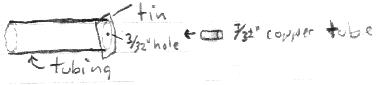 tin
3/32" hole
7/32" copper tube
tubing